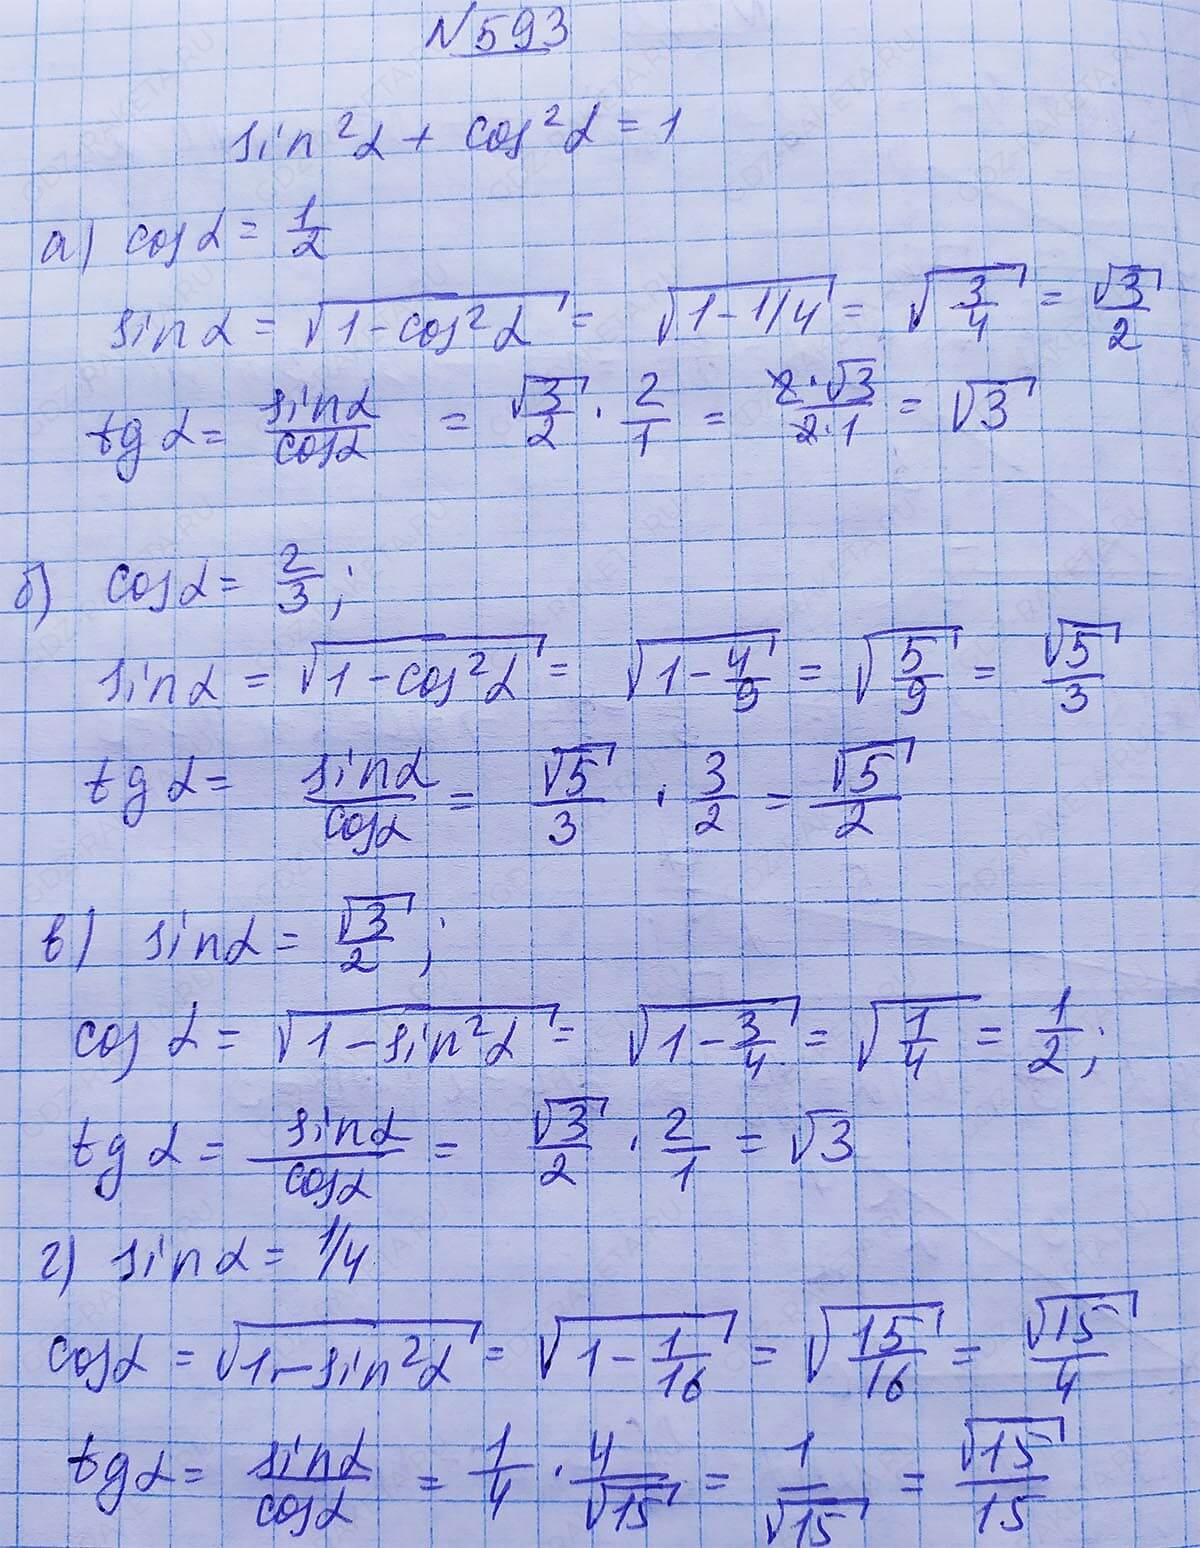 №593
sin²α + cos²α = 1
а) cosα = 1/2
sinα = √(1-cos²α) = √(1-1/4) = √(3/4) = √3/2
tgα = sinα/cosα = √3/2 · 2/1 = 2·√3/2·1 = √3
б) cosα = 2/3;
sinα = √(1-cos²α) = √(1-4/9) = √(5/9) = √5/3
tgα = sinα/cosα = √5/3 · 3/2 = √5/2
в) sinα = √3/2;
cosα = √(1-sin²α) = √(1-3/4) = √(1/4) = 1/2;
tgα = sinα/cosα = √3/2 · 2/1 = √3
г) sinα = 1/4
cosα = √(1-sin²α) = √(1-1/16) = √(15/16) = √15/4
tgα = sinα/cosα = 1/4 · 4/√15 = 1/√15 = √15/15